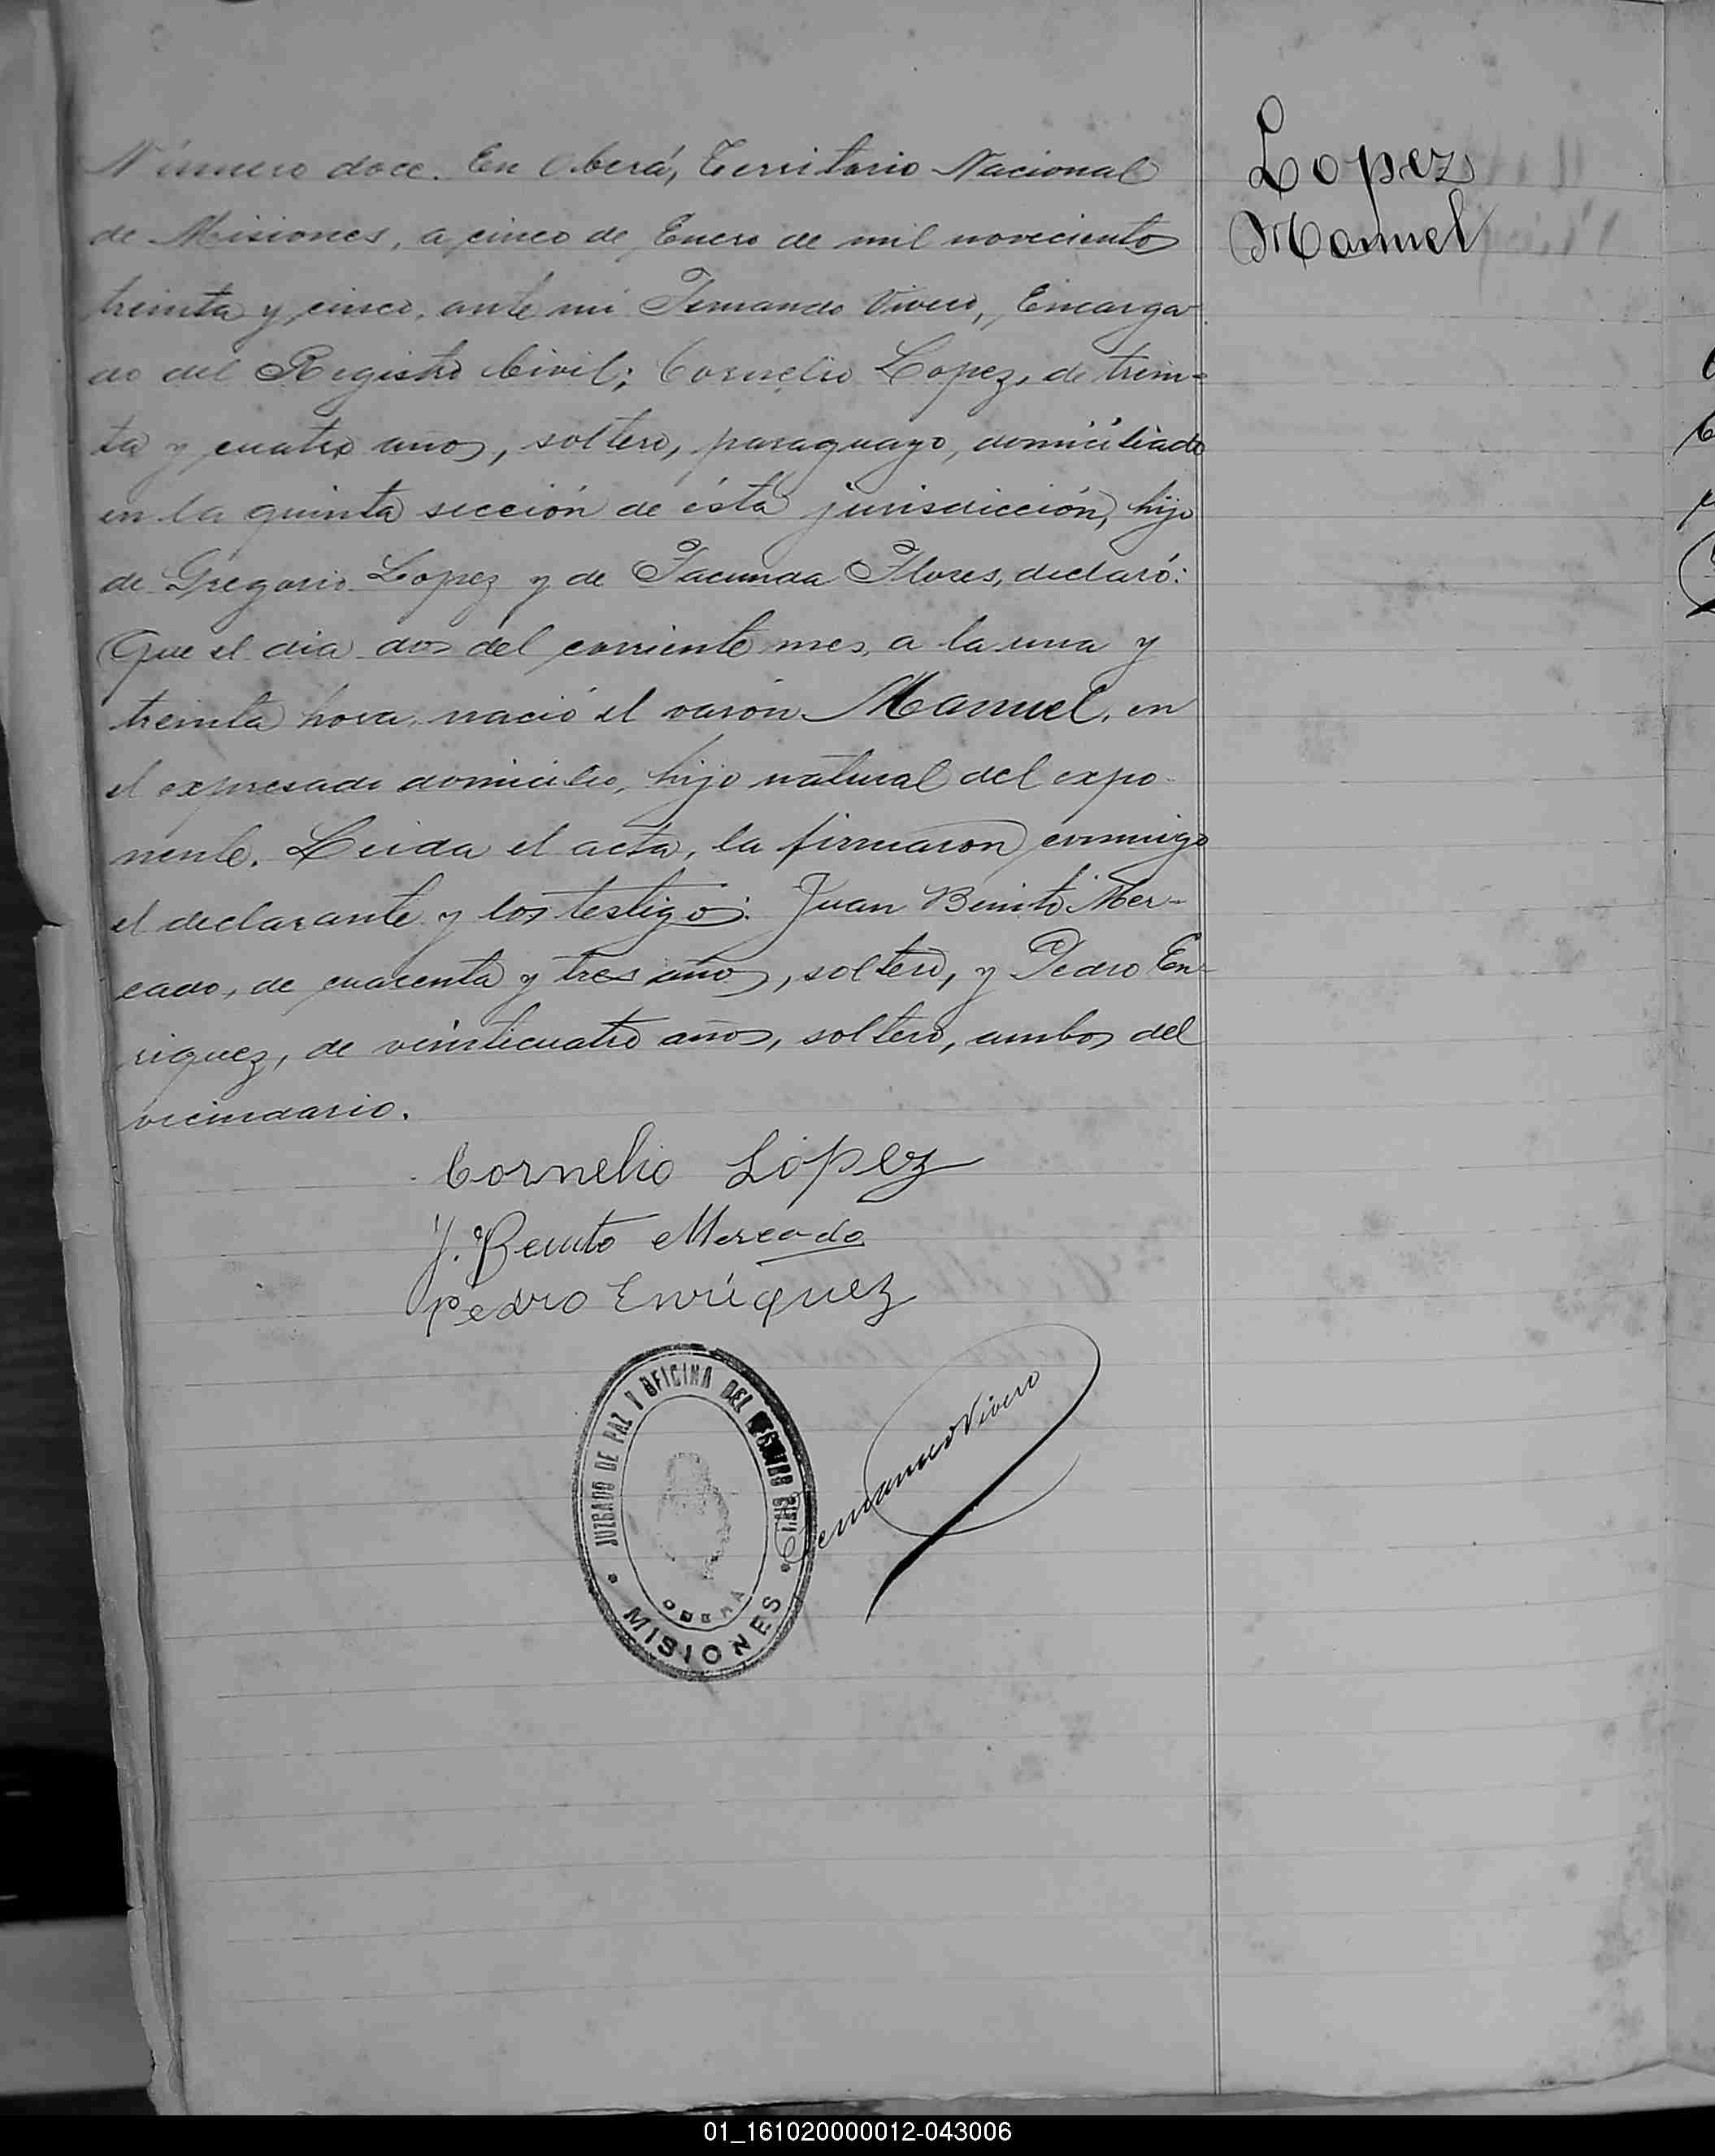 Número doce. En Oberá, Territorio Nacional
de Misiones, a cinco de Enero de mil novecientos
treinta y cinco, ante mi Fernando Vivero, Encarga
do del Registro Civil; Cornelio Lopez, de trein-
ta y cuatro años, soltero, paraguayo, domiciliado
en la quinta sección de ésta jurisdicción, hijo
de Gregorio Lopez y de Facunda Flores, declaró:
Que el dia dos del corriente mes, a la una y
treinta hora, nació el varón Manuel, en
el expresado domicilio, hijo natural del expo-
nente. Leida el acta, la firmaron conmigo
el declarante y los testigos: Juan Benito Mer-
cado, de cuarenta y tres años, soltero, y Pedro En-
riquez, de veinticuatro años, soltero, ambos del
vecindario.
Lopez
Manuel
Cornelio López
J. Benito Mercado
Pedro Enríquez
Fernando Vivero
JUZGADO DE PAZ Y OFICINA DEL REGISTRO CIVIL
OBERA
MISIONES
01_161020000012-043006